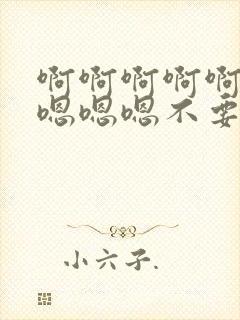 啊啊啊啊啊
嗯嗯嗯不要
小六子.